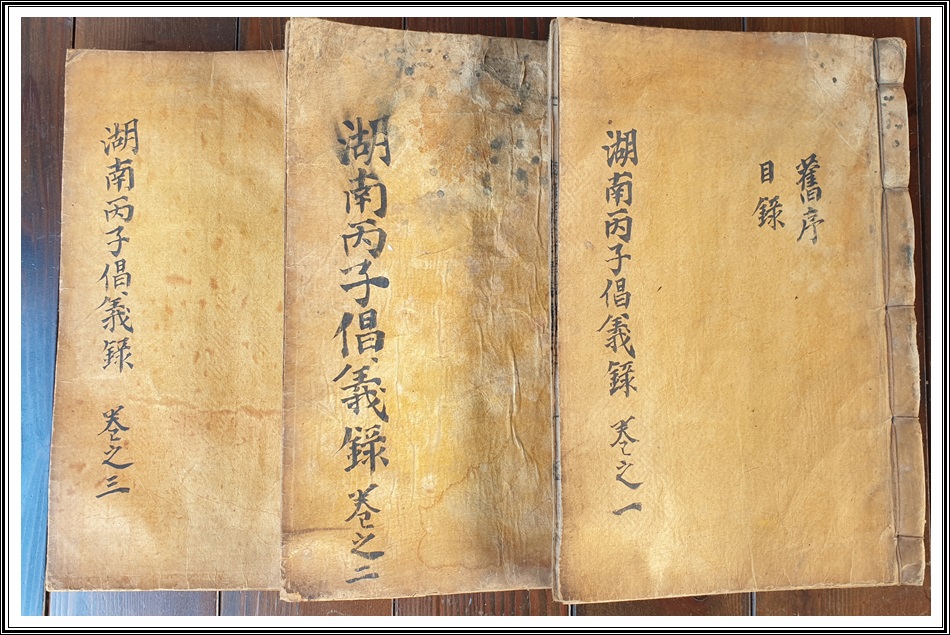 舊序
目錄
湖南丙子倡義錄 卷之一
湖南丙子倡義錄 卷之二
湖南丙子倡義錄 卷之三